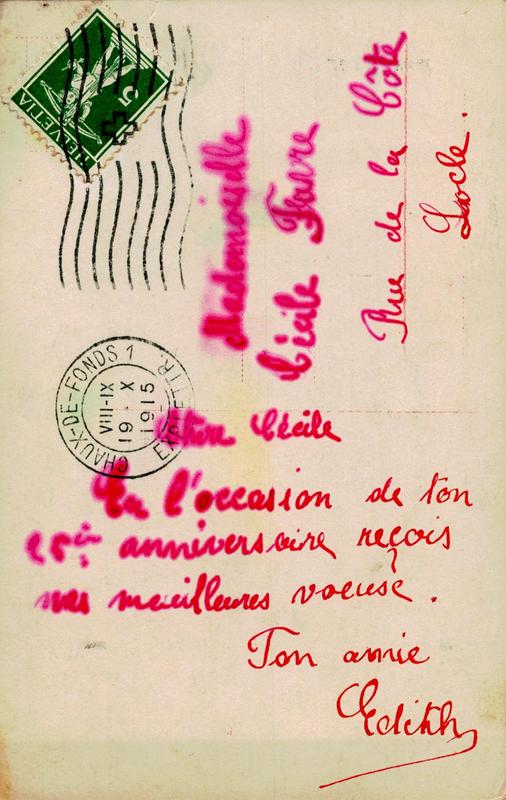 HELVETIA
5
CHAUX-DE-FONDS 1
VIII-IX
19 X
1915
Mademoiselle
Cécile Favre
Rue de la Côte
Locle.
Chère Cécile
En l'occasion de ton
anniversaire reçois
mes meilleures voeuse.
Ton amie
Edith